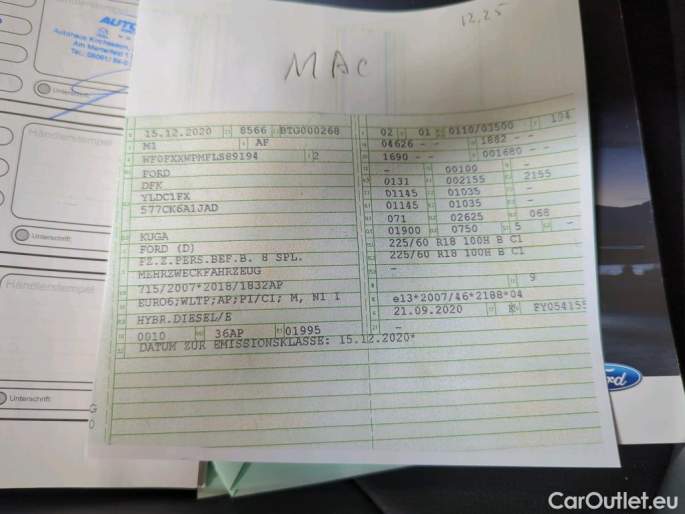 12.25
MAC
AUTO
Autohaus Kirchseeon
Händlerstempel
Unterschrift
15.12.2020 8566 BTG000268 02 01 0110/03500 104
M1 AF 04626 - - 1882 - -
WF0FXXWPMFLS89194 2 1690 - - 001680 - -
FORD - 00100 -
DFK 0131 002155 2155
YLDC1FX 01145 01035 -
577CK6A1JAD 01145 01035 -
071 02625 068
KUGA 01900 0750 5 -
FORD (D) 225/60 R18 100H B C1
FZ.Z.PERS.BEF.B. 8 SPL. 225/60 R18 100H B C1
MEHRZWECKFAHRZEUG -
715/2007*2018/1832AP 9
EURO6;WLTP;AP;PI/CI; M, N1 I e13*2007/46*2188*04
HYBR.DIESEL/E 21.09.2020 K FY054155
0010 36AP 01995 -
DATUM ZUR EMISSIONSKLASSE: 15.12.2020*
Händlerstempel
Unterschrift
Ford
CarOutlet.eu